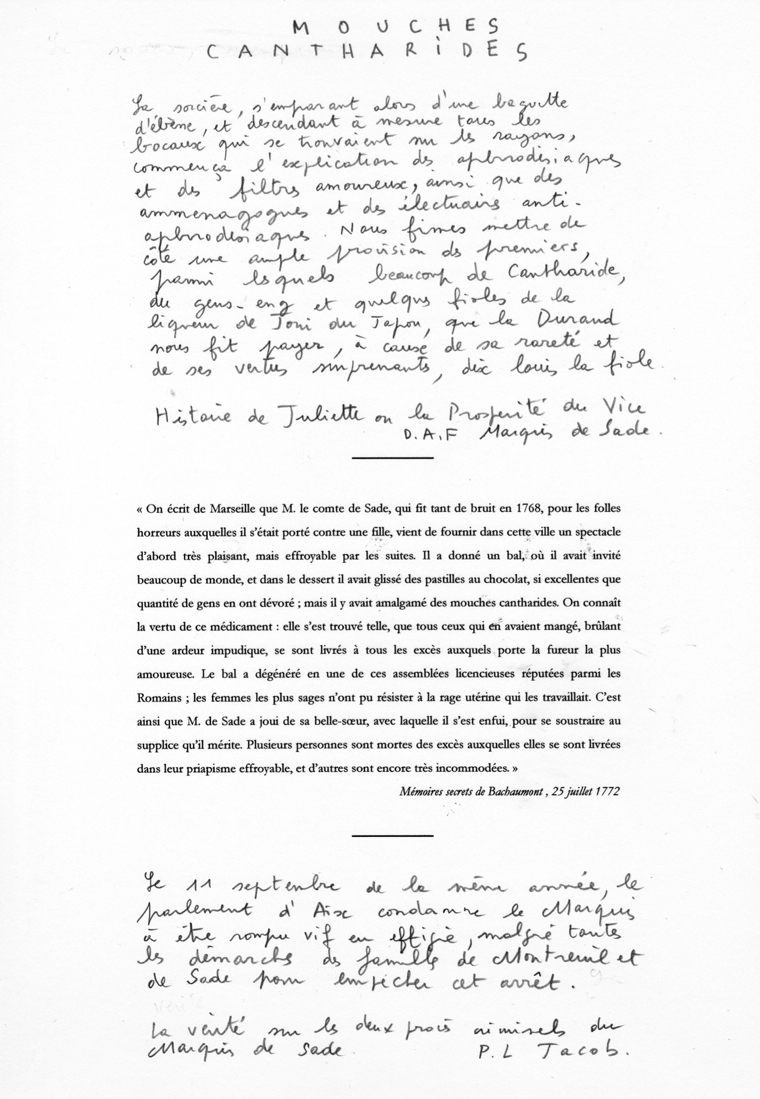 MOUCHES
CANTHARiDES
La sorcière, s'emparant alors d'une baguette
d'ébène, et descendant à mesure tous les
bocaux qui se trouvaient sur les rayons,
commença l'explication des aphrodisiaques
et des filtres amoureux, ainsi que des
ammenagogues et des électuaires anti-
aphrodisiaques. Nous fimes mettre de
côté une ample provision des premiers,
parmi lesquels beaucoup de Cantharide,
du gens-eng et quelques fioles de la
liqueur de Joni du Japon, que la Durand
nous fit payer, à cause de sa rareté et
de ses vertus surprenants, dix louis la fiole.
Histoire de Juliette ou la Prosperité du Vice
D.A.F Marquis de Sade.
« On écrit de Marseille que M. le comte de Sade, qui fit tant de bruit en 1768, pour les folles
horreurs auxquelles il s'était porté contre une fille, vient de fournir dans cette ville un spectacle
d'abord très plaisant, mais effroyable par les suites. Il a donné un bal, où il avait invité
beaucoup de monde, et dans le dessert il avait glissé des pastilles au chocolat, si excellentes que
quantité de gens en ont dévoré ; mais il y avait amalgamé des mouches cantharides. On connaît
la vertu de ce médicament : elle s'est trouvé telle, que tous ceux qui en avaient mangé, brûlant
d'une ardeur impudique, se sont livrés à tous les excès auxquels porte la fureur la plus
amoureuse. Le bal a dégénéré en une de ces assemblées licencieuses réputées parmi les
Romains ; les femmes les plus sages n'ont pu résister à la rage utérine qui les travaillait. C'est
ainsi que M. de Sade a joui de sa belle-sœur, avec laquelle il s'est enfui, pour se soustraire au
supplice qu'il mérite. Plusieurs personnes sont mortes des excès auxquelles elles se sont livrées
dans leur priapisme effroyable, et d'autres sont encore très incommodées. »
Mémoires secrets de Bachaumont , 25 juillet 1772
Le 11 septembre de la même année, le
parlement d'Aix condamne le Marquis
à être rompu vif en effigie, malgré toutes
les démarches des familles de Montreuil et
de Sade pour empêcher cet arrêt.
La vérité sur les deux procès criminels du
Marquis de Sade. P.L Jacob.